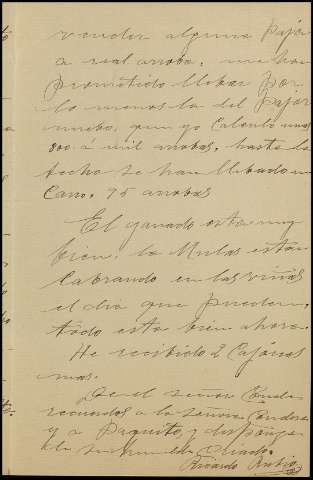 vender alguna Paja
a real arroba. me han
Prometido llebar Por
lo menos la del Pajar
nuebo, que yo Calculo unas
800 á mil arrobas, hasta la
fecha se han llebado un
Carro. 95 arrobas
El ganado esta muy
bien: la Mulas están
labrando en las viñas
el dia que Pueden,
tódo esta bien ahora.
He recibido 2 Cajónes
mas.
De el señor Conde
recuerdos a la señora Condesa
y a Paquito, y dispónga
de su humilde Criado.
Ricardo Rubio